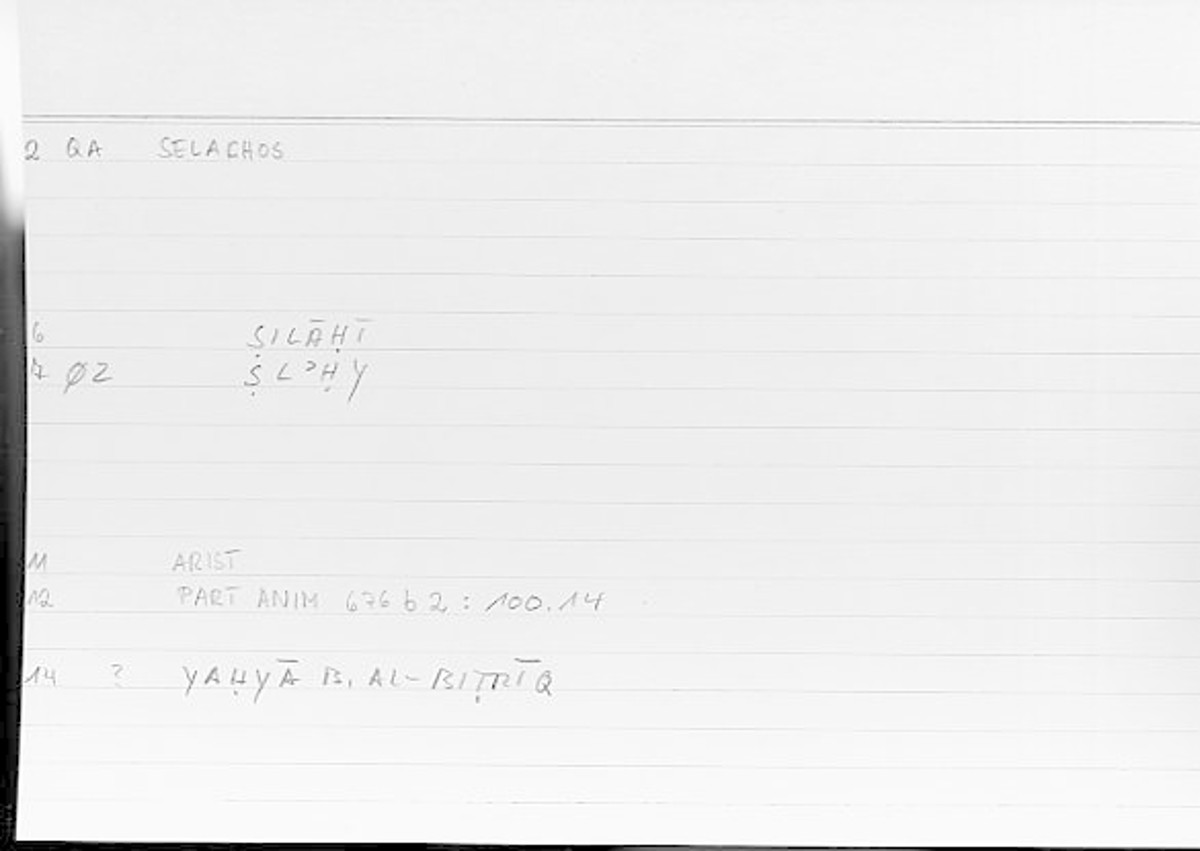 2 QA SELACHOS
6 ṢILĀḤĪ
7 ØZ ṢLʾḤY
11 ARIST
12 PART ANIM 676 b 2 : 100.14
14 ? YAḤYĀ B. AL-BIṬRĪQ